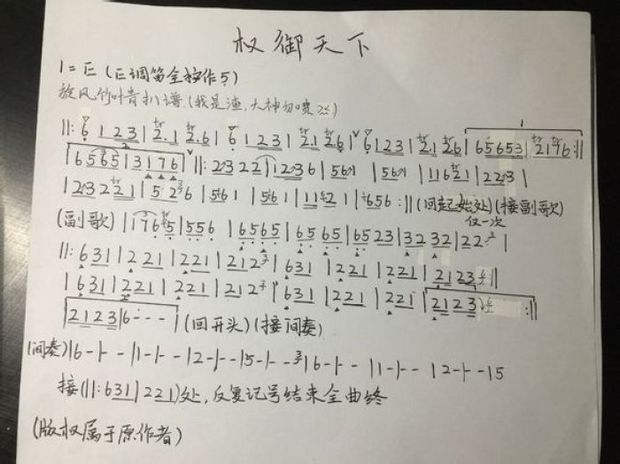 权御天下
1=E (E调笛全按作5)
旋风竹叶青扒谱.(我是渣,大神勿喷)
||: 6 1 2 3 | 2. 1 2. 6 | 6 1 2 3 | 2. 1 2. 6 | 6 1 2 3 | 2. 1 2. 6 | 6 5 6 5 3 | 2 1 7 6 :||
| 6 5 6 5 | 3 1 7 6 | ||: 2 3 2 2 1 | 2 3 6 | 5 6 1 | 5 6 1 | 1 1 6 2 1 | 2 2 3 |
| 2 3 2 2 1 | 5 2 3 6 | 5 6 1 | 5 6 1 | 1 1 2 1 | 6 5 6 :|| (回起始处)(接副歌)
仅一次
(副歌) | 1 7 6 5 | 5 5 6 | 6 5 6 5 | 6 5 6 5 | 6 5 2 3 | 3 2 3 2 | 2 2 |
||: 6 3 1 | 2 2 1 | 2 2 1 | 2 1 2 3 | 6 3 1 | 2 2 1 | 2 2 1 | 2 1 2 3 ||
| 6 3 1 | 2 2 1 | 2 2 1 | 2 1 2 | 6 3 1 | 2 2 1 | 2 2 1 | 2 1 2 3 :||
| 2 1 2 3 | 6 - - - | (回开头)(接间奏)
(间奏) | 6 - - - | 1 - - - | 2 - - - | 5 - - 3 | 6 - - - | 1 - - - | 2 - - - | 5
接(||: 6 3 1 | 2 2 1)处,反复记号结束全曲终
(版权属于原作者)